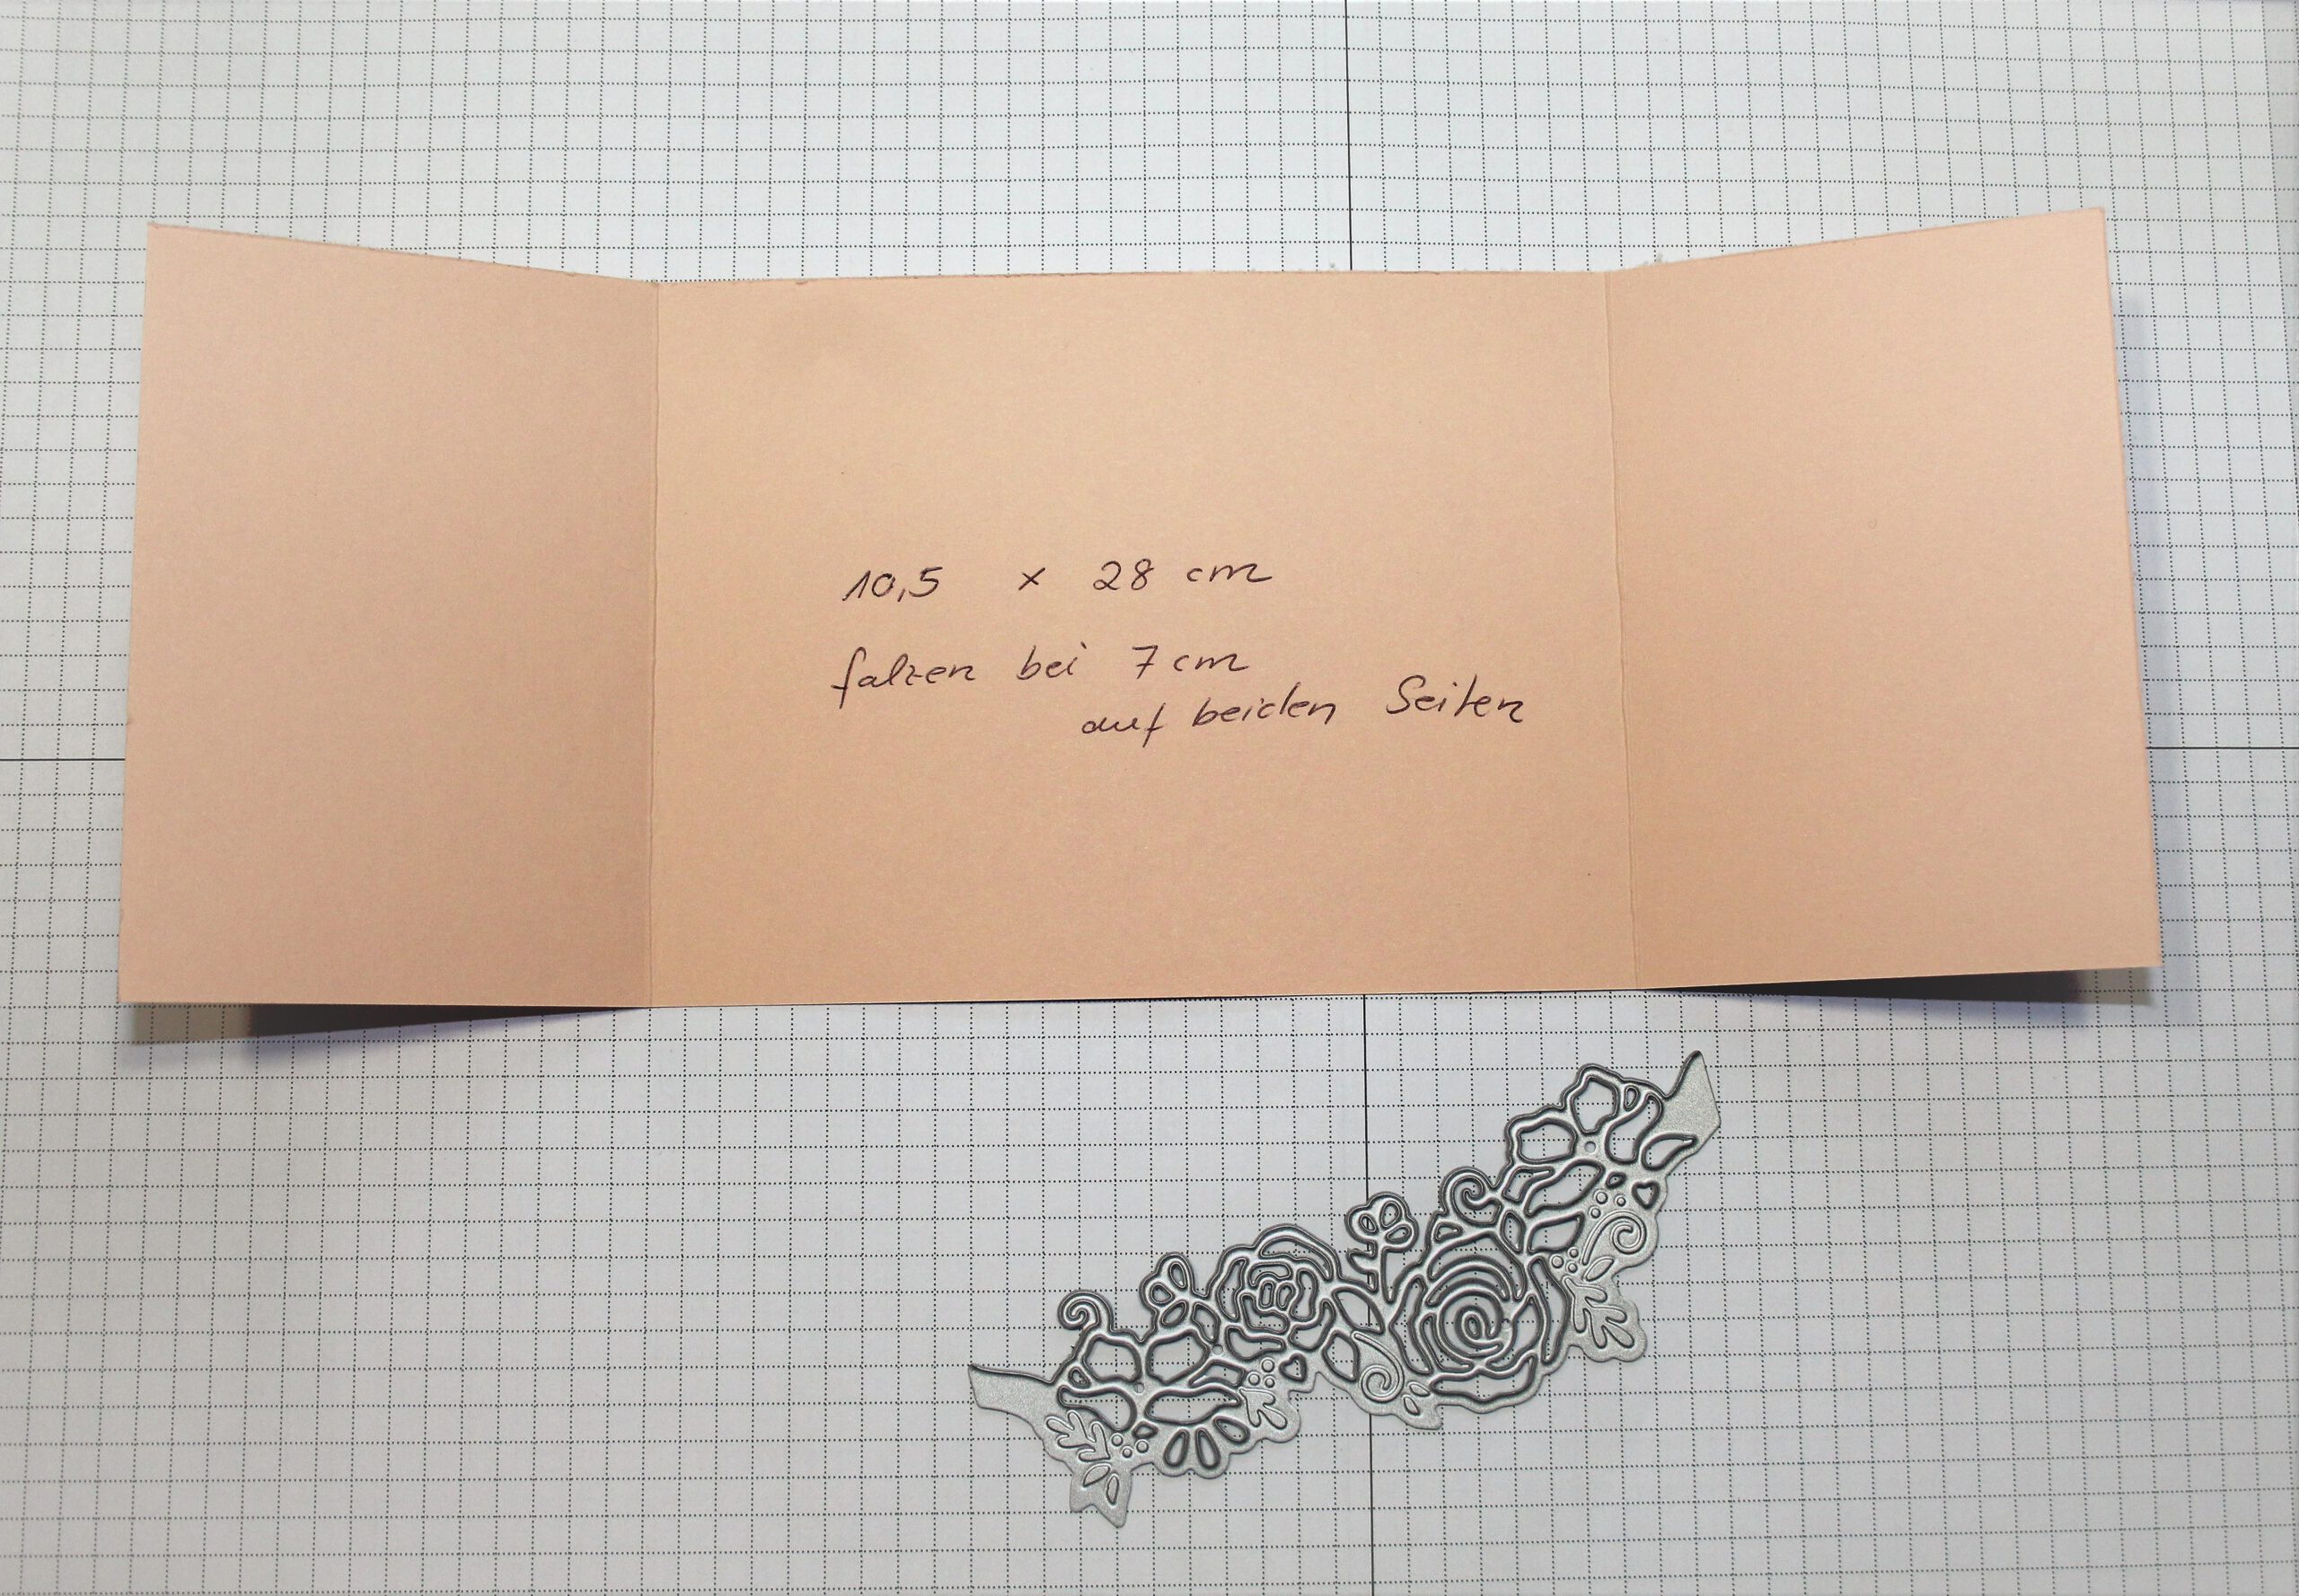 10,5 x 28 cm
falzen bei 7 cm
auf beiden Seiten